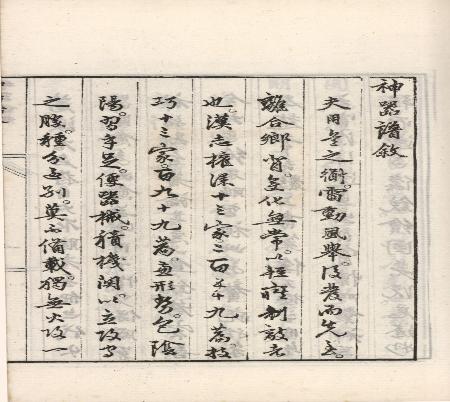 神器譜敘
夫用兵之術雷動風舉後發而先至
離合鄉背變化無常以輕疾制敵者
也漢志權謀十三家二百五十九篇技
巧十三家百九十九篇兼形勢包陰
陽習手足便器械積機關以立攻守
之勝種分五別莫不備載獨無火攻一